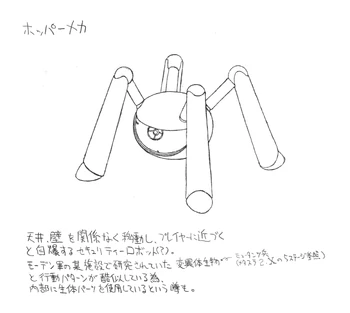 ホッパーメカ
天井、壁を関係なく移動し、プレイヤーに近づく
と自爆するセキュリティーロボット(?)。
モーデン軍の某施設で研究されていた変異体生物
と行動パターンが酷似している為、
内部に生体パーツを使用しているという噂も。
(メタスラ2、Xの5ステージ参照)